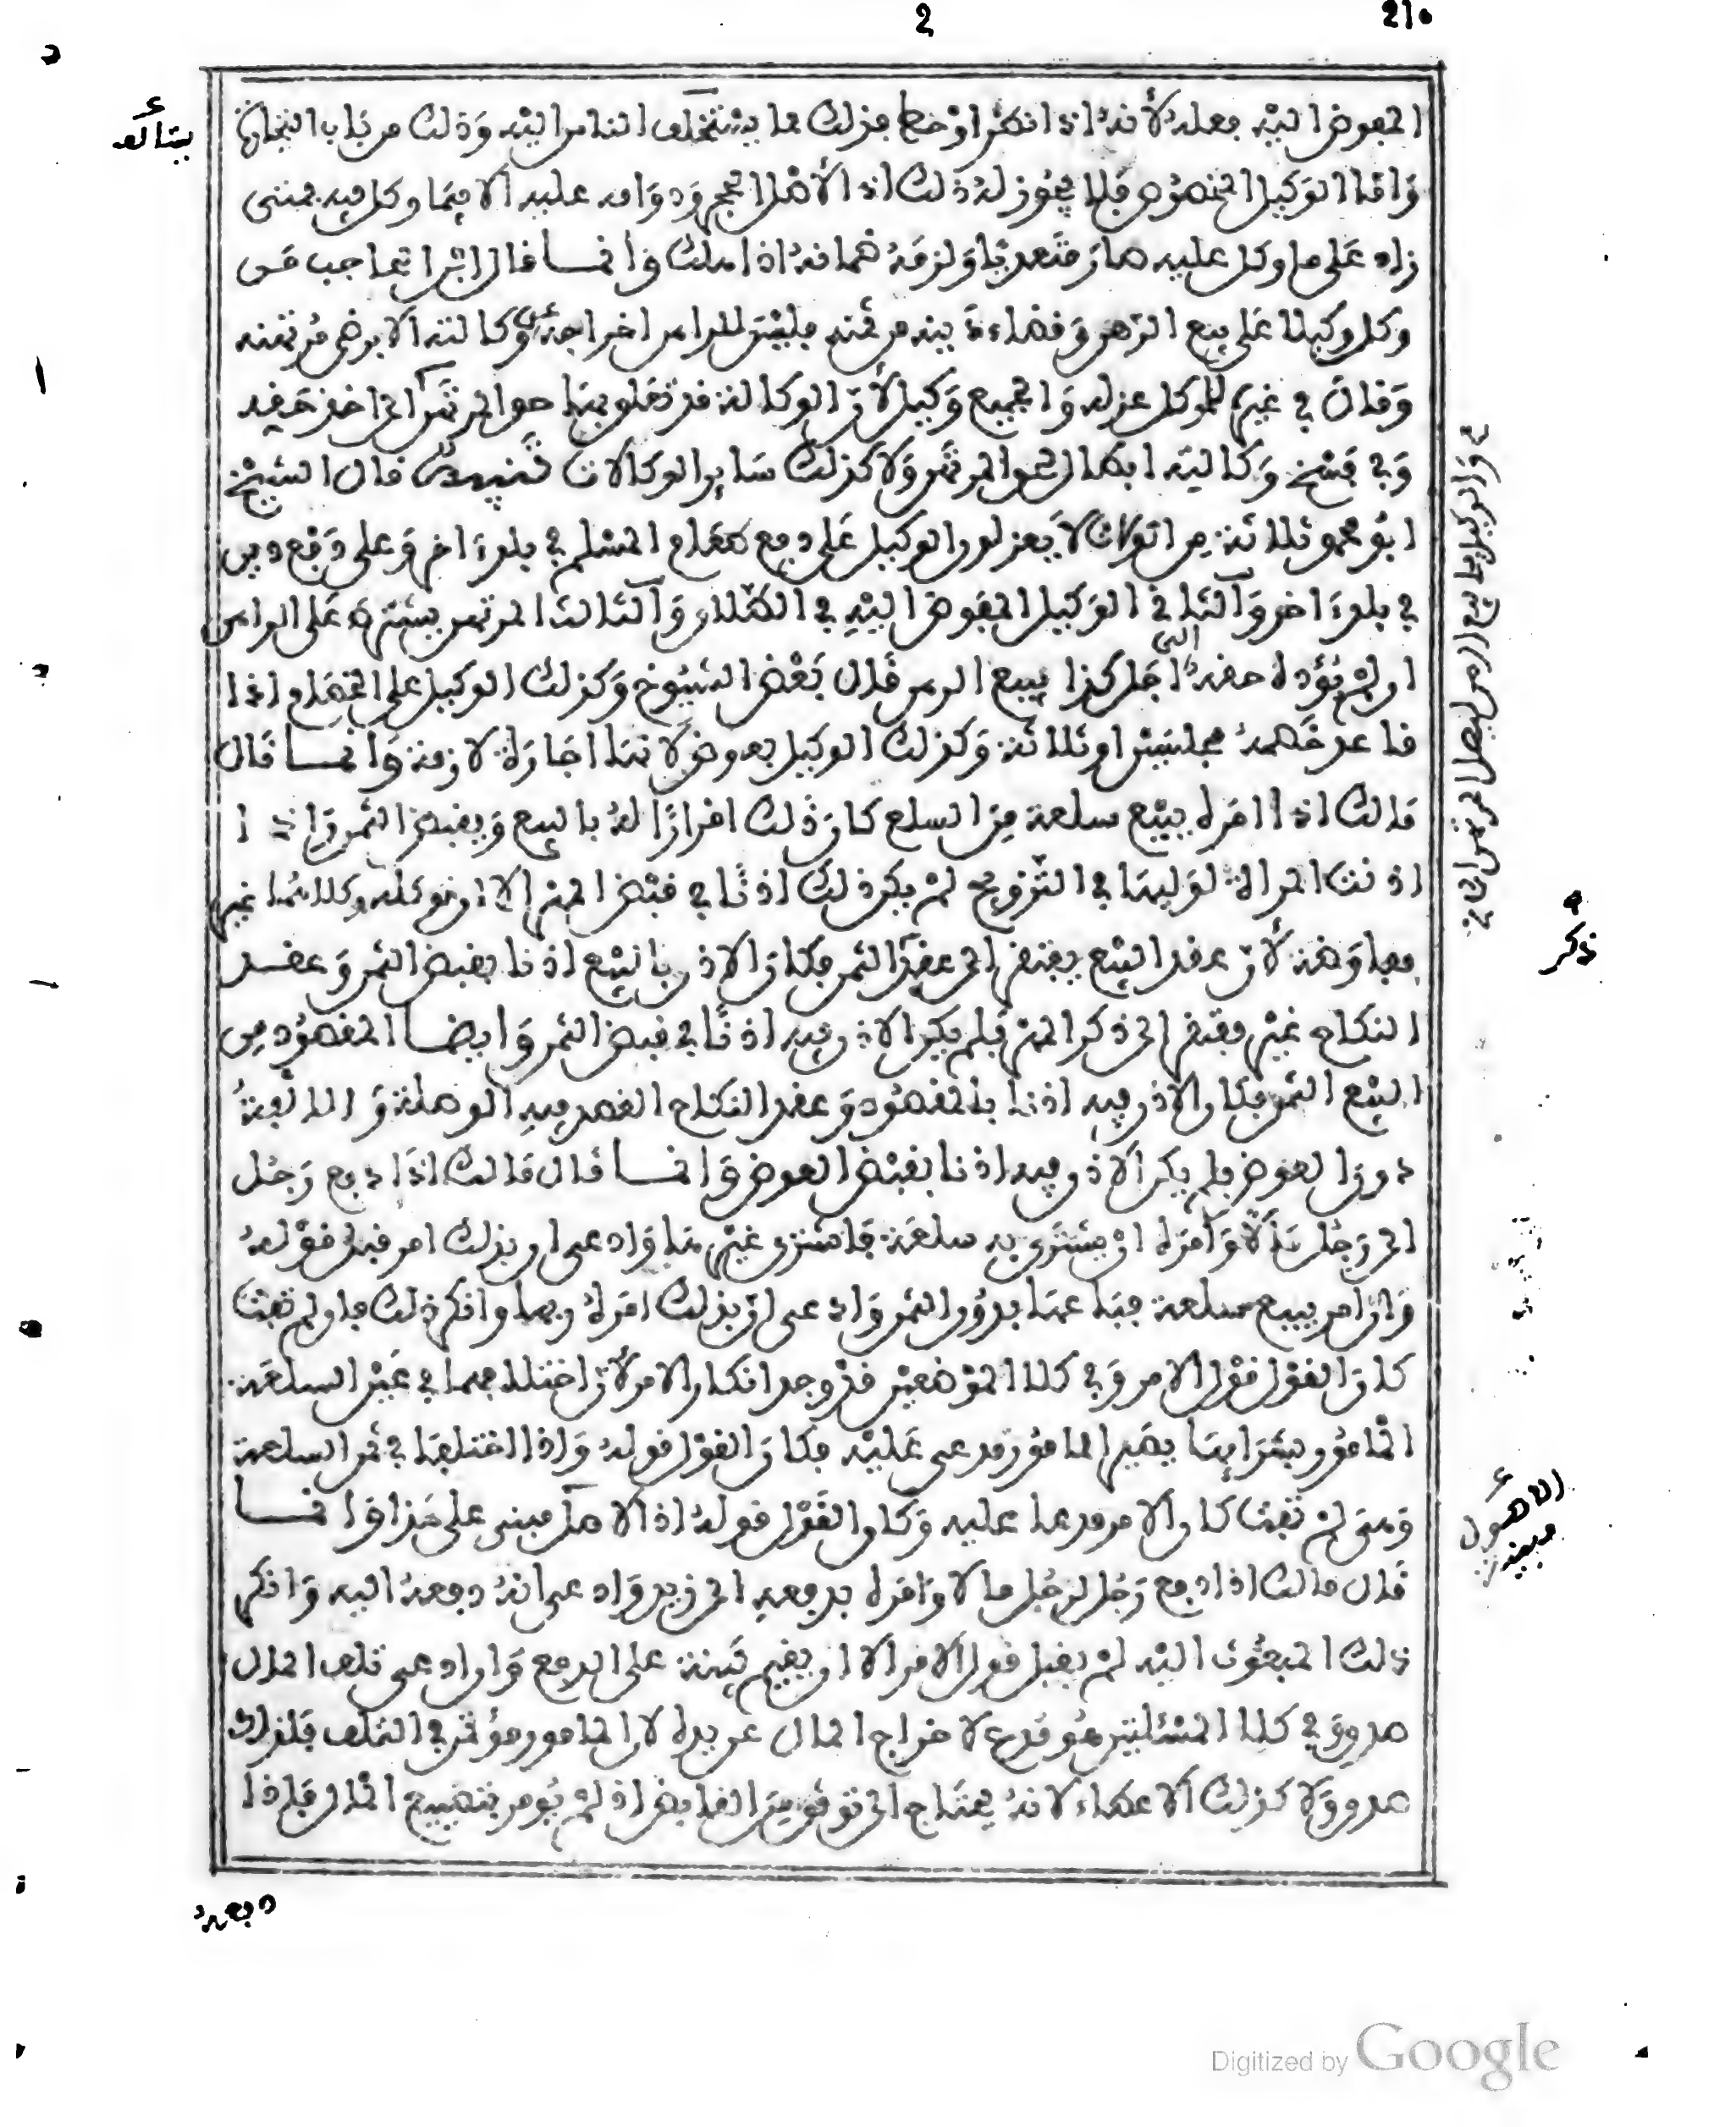 2 210
المفوض اليه فعله لأنه اذا انكر او خطا فذلك مما يستخلف الناس اليه وذلك من باب التجارة
يتألف
واما الوكيل المخصوص فلا يجوز له ذلك اذ الأصل الحجر ودوامه عليه الا فيما وكل فيه فمتى
زاد على ما وكل عليه صار متعديا ولزمه ضمانه اذا اهلك وانما قال ابن الحاجب من
وكل وكيلا على بيع الرهن وقضاء دينه من ثمنه فليس للراهن اخراجه عن وكالته الا برضى مرتهنه
وقال في غيره للموكل عزله والجميع وكيل لأن الوكالة قد تعلق بها حق المرتهن الى اخذ حقه
وفي فسخ وكالته ابطال لحق المرتهن ولا كذلك سائر الوكالات تنبيه قال الشيخ
ابو محمد ثلاثة من الوكلاء لا يعزلون الوكيل على دفع طعام المسلم في بلد ءاخر وعلى دفع دين
في بلد ءاخر والثاني الوكيل المفوض اليه في الطلاق والثالث المرتهن يشترط على الراهن
ان لم يؤد له حقه الى اجل كذا يبيع الرهن قال بعض الشيوخ وكذلك الوكيل على الخصام اذا
قاعد خصمه مجلسين او ثلاثة وكذلك الوكيل بعوض لانها اجارة لازمة وانما قال
مالك اذا امره ببيع سلعة من السلع كان ذلك اقرارا له بالبيع وبقبض الثمن واذا
اذنت المرأة لوليها في التزويج لم يكن ذلك اذنا في قبض المهر الا ان توكله وكلاهما غير
معاوضة لأن عقد البيع يفتقر الى عقد الثمن فكان الاذن بالبيع اذنا بقبض الثمن وعقد
ذكر
النكاح غير مفتقر الى ذكر المهر فلم يكن الاذن فيه اذنا في قبض الثمن وايضا المقصود من
البيع الثمن فكان الاذن فيه اذنا بالمقصود وعقد النكاح القصد فيه الوصلة والالفة
دون العوض فلم يكن الاذن فيه اذنا بقبض العوض وانما قال مالك اذا دفع رجل
الى رجل مالا وامره ان يشتري به سلعة فاشترى غيرها وادعى ان بذلك امر قبل قوله
وان امر ببيع سلعة فباعها بدون الثمن وادعى ان بذلك امره ربها وانكر ذلك فان لم تفت
كان القول قول الامر وفي كلا الموضعين قد وجد انكار الامر لأن اختلافهما في غير السلعة
المامور بشرائها يصير المامور مدعى عليه فكان القول قوله واذا اختلفا في ثمن السلعة
ومتى لم تفت كان الامر مدعا عليه وكان القول قوله اذ الاصل مبنى على هذا وانما
الاصول مبنية
قال مالك اذا دفع رجل لرجل مالا وامره بدفعه الى زيد وادعى انه دفعه اليه وانكر
ذلك المبعوث اليه لم يقبل قول الامر الا ان يقيم بينة على الدفع وان ادعى تلف المال
صدق وفي كلا المسئلتين هو مدع لاخراج المال عن يده لان المامور مؤتمن في التلف فلذلك
صدق ولا كذلك الاعطاء لانه يحتاج الى توثق من القابض اذ لم يومر بتضييع المال فاذا
دفعه